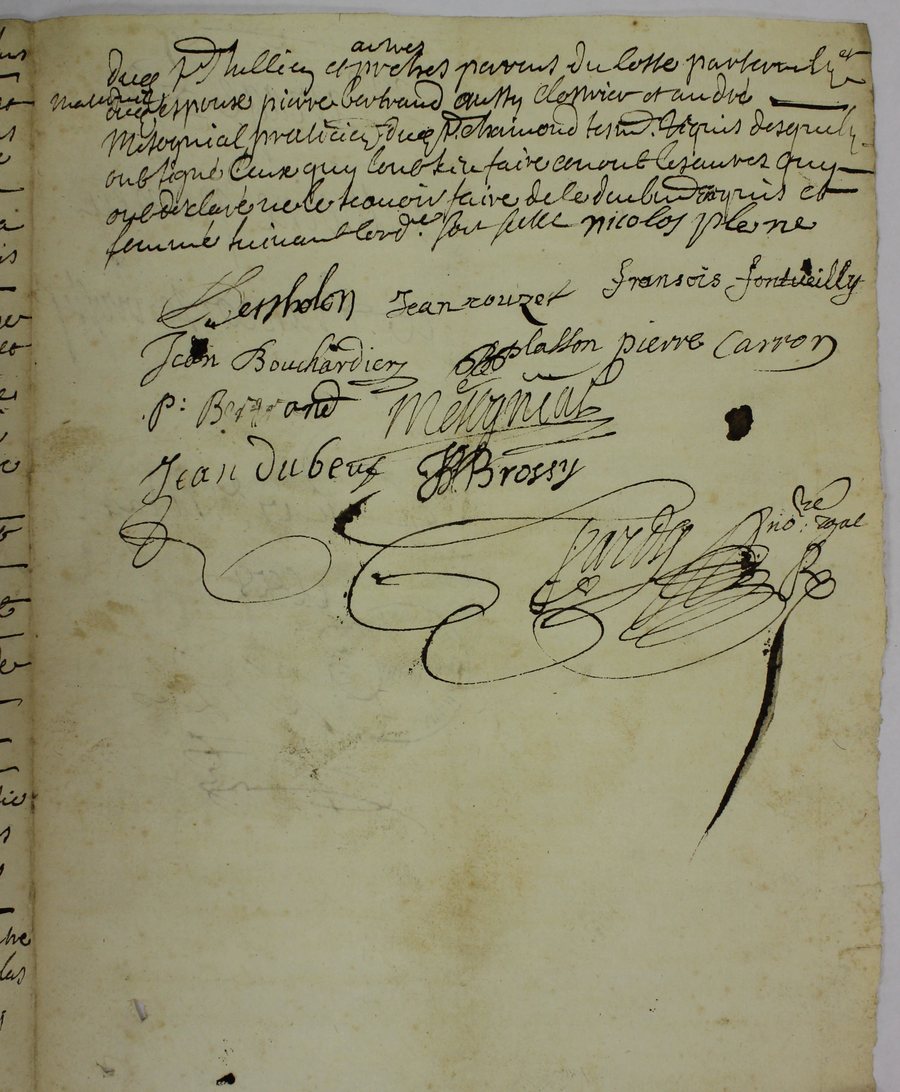 dud St Jullien et autres proches parens du coste paternel et
maternel espoux pierre bertrand aussy clostrier et andré
Mesynial praticien dud St chaimond tesm. requis desquels
ont signé ceux quy l'ont sceu faire non les autres quy
ont desclaré ne le scavoir faire de le deubmt enquis et
sommé suivant lord.e soit scellé nicolas plene
Berthollon Jean rouzet fransois fontveilly
Jean Bouchardier plasson pierre Carron
p: Bertrand Mesynial
Jean dubeuf JBrossy
Jardin no.re royal